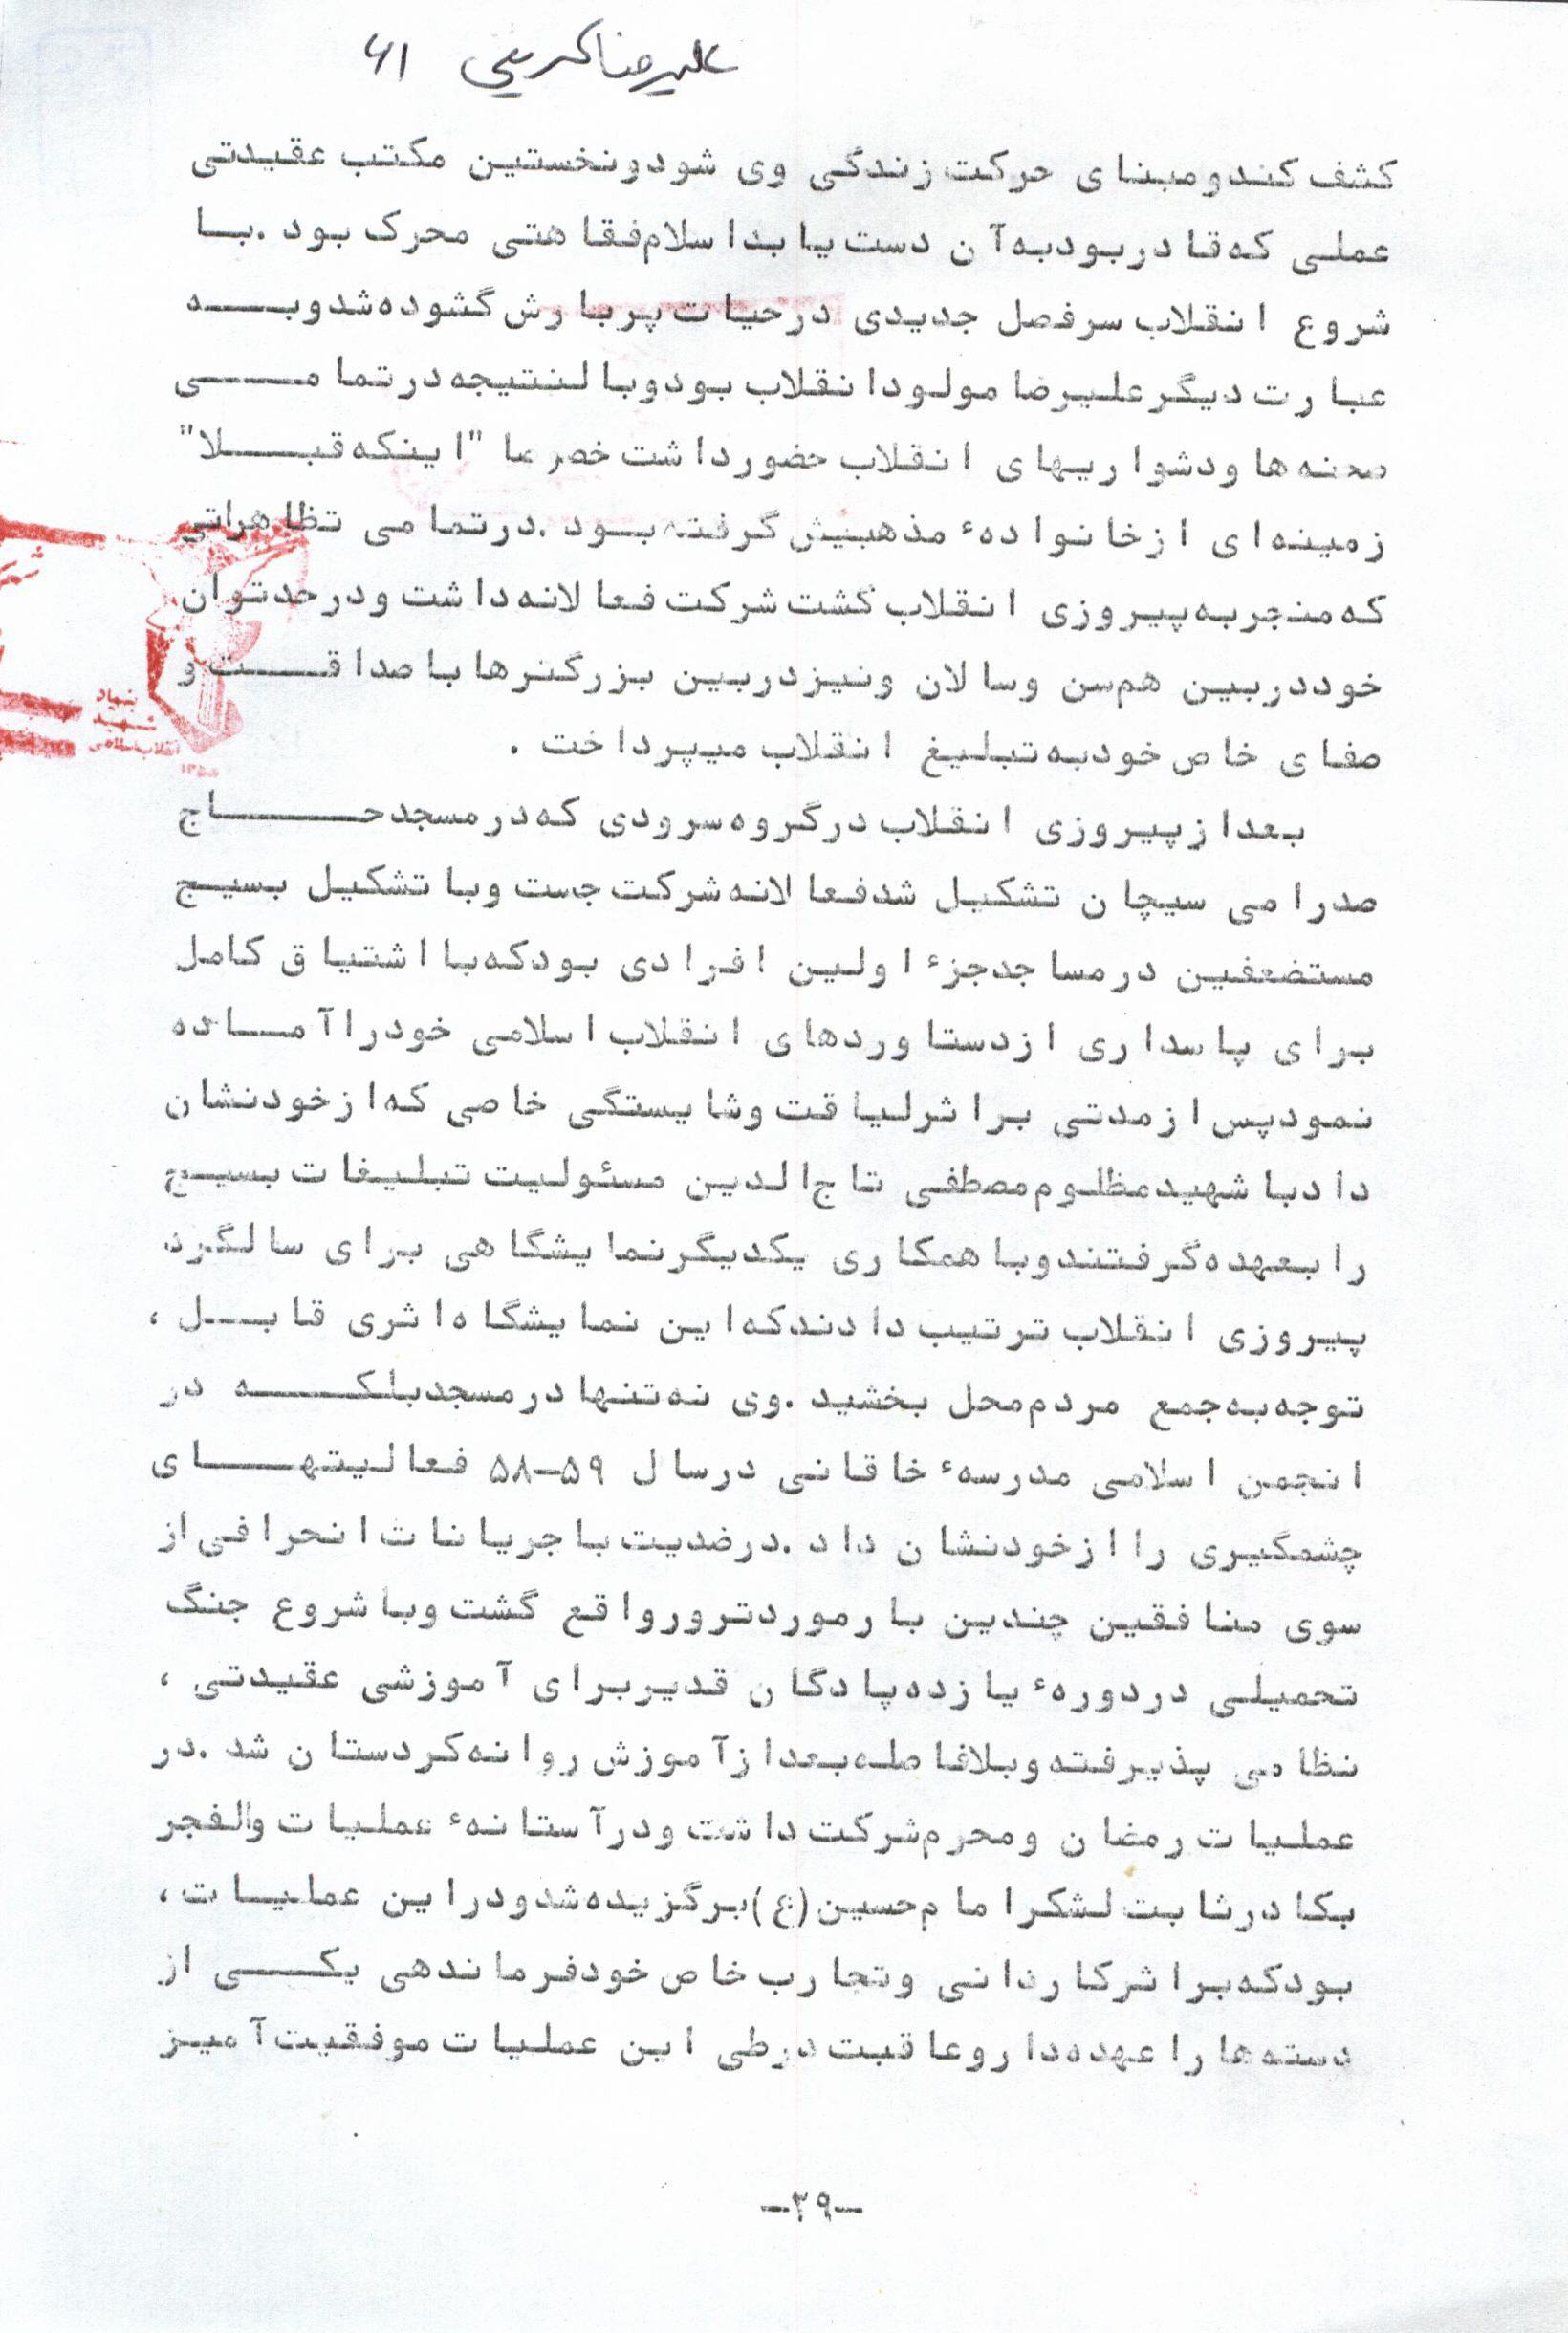 علیرضا کریمی ۶۱
کشف کند و مبنای حرکت زندگی وی شود و نخستین مکتب عقیدتی
عملی که قادر بود به آن دست یابد اسلام فقاهتی محرک بود . با
شروع انقلاب سرفصل جدیدی در حیات پربارش گشوده شد و به
عبارت دیگر علیرضا مولود انقلاب بود و بالنتیجه در تمامی
صحنه‌ها و دشواریهای انقلاب حضور داشت خصوصا "اینکه قبلا"
زمینه‌ای از خانواده‌ء مذهبیش گرفته بود . در تمامی تظاهراتی
که منجر به پیروزی انقلاب گشت شرکت فعالانه داشت و در حد توان
خود در بین هم‌سن و سالان و نیز در بین بزرگترها با صداقت و
صفای خاص خود به تبلیغ انقلاب میپرداخت .
بنیاد
شهید
انقلاب اسلامی
بعد از پیروزی انقلاب در گروه سرودی که در مسجد حاج
صدرامی سیچان تشکیل شد فعالانه شرکت جست و با تشکیل بسیج
مستضعفین در مساجد جزء اولین افرادی بود که با اشتیاق کامل
برای پاسداری از دستاوردهای انقلاب اسلامی خود را آماده
نمود پس از مدتی بر اثر لیاقت و شایستگی خاصی که از خود نشان
داد با شهید مظلوم مصطفی تاج‌الدین مسئولیت تبلیغات بسیج
را بعهده گرفتند و با همکاری یکدیگر نمایشگاهی برای سالگرد
پیروزی انقلاب ترتیب دادند که این نمایشگاه اثری قابل ،
توجه به جمع مردم محل بخشید . وی نه تنها در مسجد بلکه در
انجمن اسلامی مدرسه‌ء خاقانی در سال ۵۹-۵۸ فعالیتهای
چشمگیری را از خود نشان داد . در ضدیت با جریانات انحرافی از
سوی منافقین چندین بار مورد ترور واقع گشت و با شروع جنگ
تحمیلی در دوره‌ء یازده پادگان قدیر برای آموزشی عقیدتی ،
نظامی پذیرفته و بلافاصله بعد از آموزش روانه کردستان شد . در
عملیات رمضان و محرم شرکت داشت و در آستانه‌ء عملیات والفجر
بکادر ثابت لشکر امام حسین (ع) برگزیده شد و در این عملیات ،
بود که بر اثر کاردانی و تجارب خاص خود فرماندهی یکی از
دسته‌ها را عهده‌دار و عاقبت در طی این عملیات موفقیت آمیز
-۳۹-